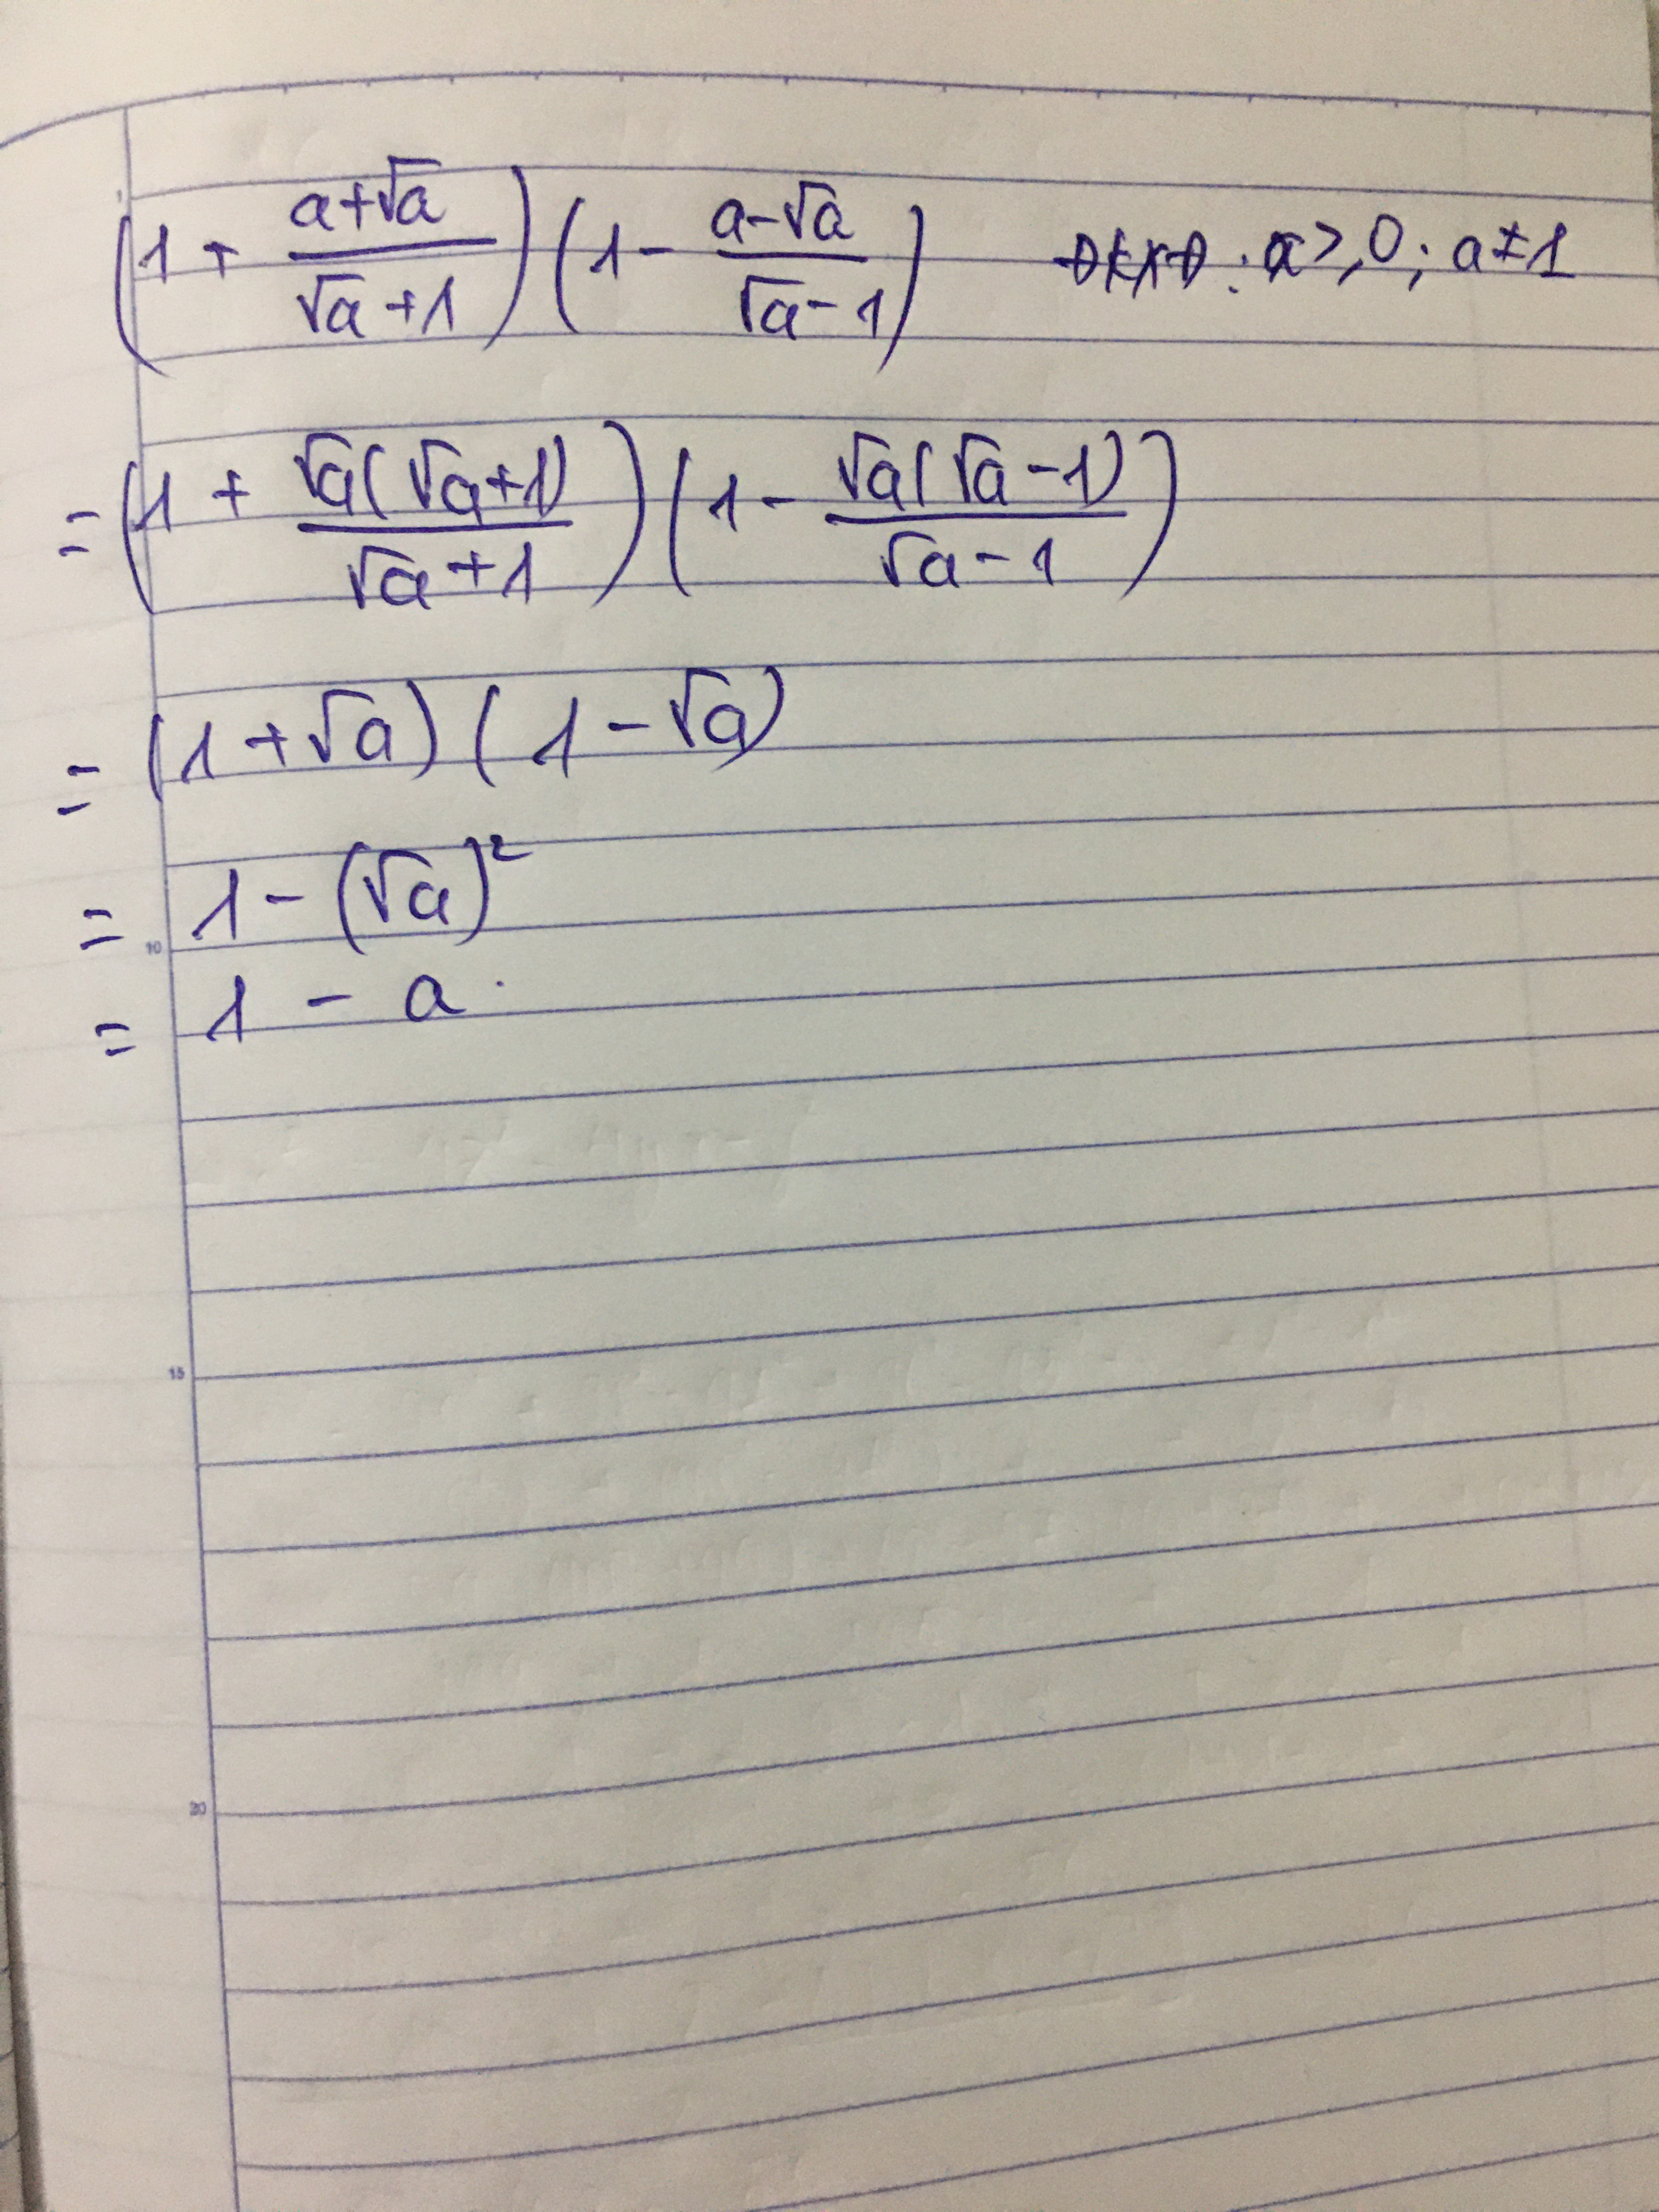 (1 + (a+√a)/(√a+1)) (1 - (a-√a)/(√a-1)) ĐKXĐ: a ≥ 0; a ≠ 1
= (1 + √a(√a+1)/(√a+1)) (1 - √a(√a-1)/(√a-1))
= (1+√a)(1-√a)
= 1-(√a)²
10
= 1 - a.
15
20